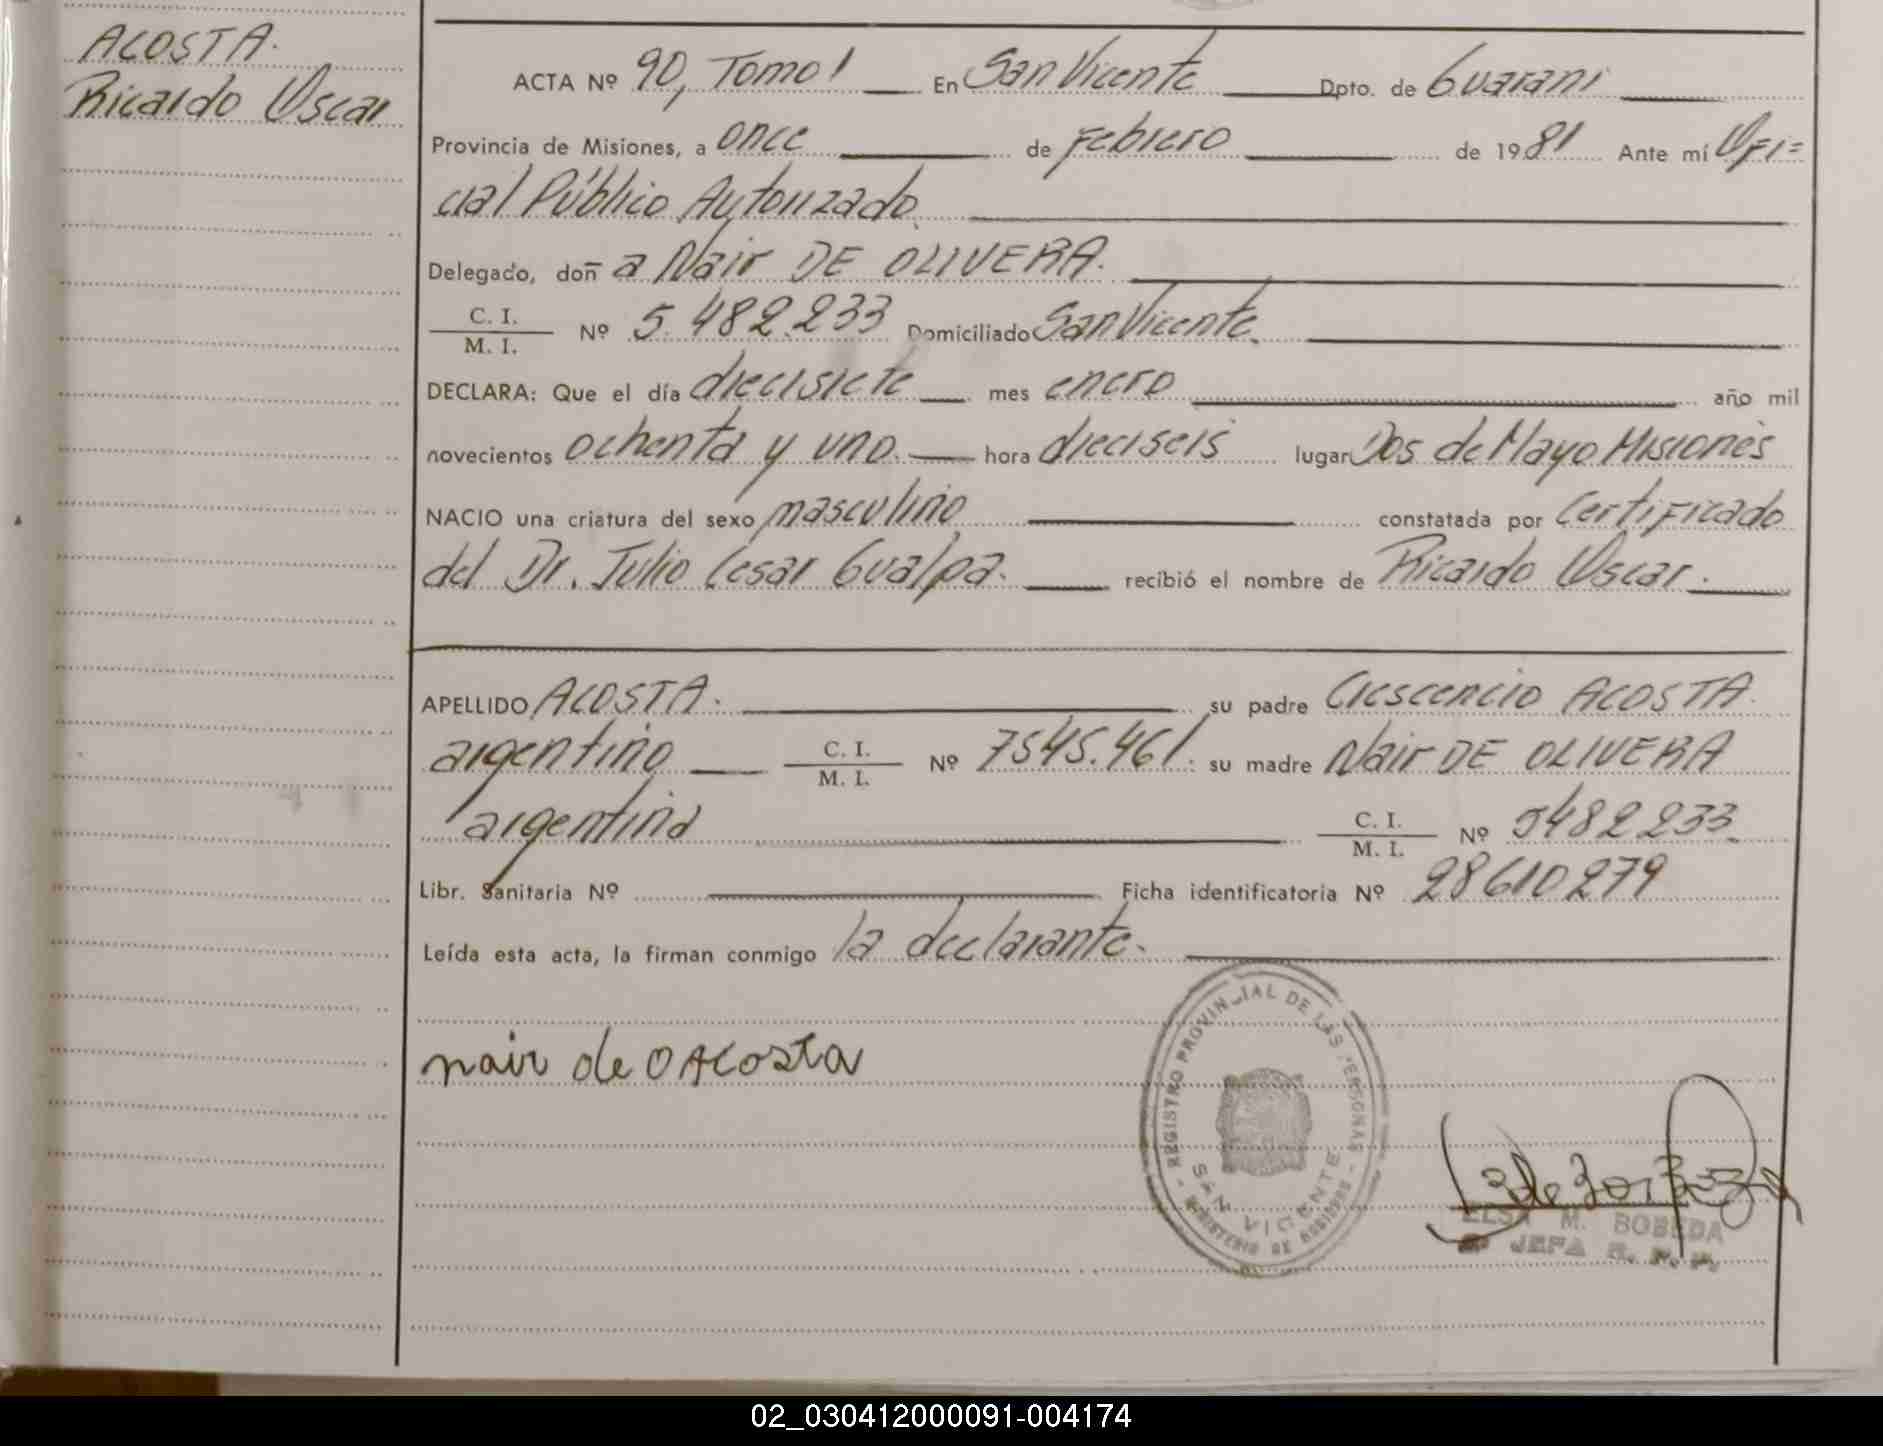 ACOSTA.
Ricardo Oscar
ACTA Nº 90, Tomo I En San Vicente Dpto. de Guarani
Provincia de Misiones, a once de Febrero de 1981 Ante mí Ofi=
cial Público Autorizado
Delegado, doña Nair DE OLIVERA.
C. I.
M. I. Nº 5.482.233 Domiciliado San Vicente.
DECLARA: Que el día diecisiete mes enero año mil
novecientos ochenta y uno. hora dieciseis lugar Dos de Mayo Misiones
NACIO una criatura del sexo masculino constatada por Certificado
del Dr. Julio Cesar Gualpa. recibió el nombre de Ricardo Oscar.
APELLIDO ACOSTA. su padre Crescencio ACOSTA.
argentino C. I. M. I. Nº 7545.461. su madre Nair DE OLIVERA
argentina C. I. M. I. Nº 5482233.
Libr. Sanitaria Nº Ficha identificatoria Nº 28610279
Leída esta acta, la firman conmigo la declarante.
nair de O Acosta
REGISTRO PROVINCIAL DE LAS PERSONAS
SAN VICENTE
MINISTERIO DE GOBIERNO
ELSA M. BOBEDA
JEFA R. P. P.
02_030412000091-004174